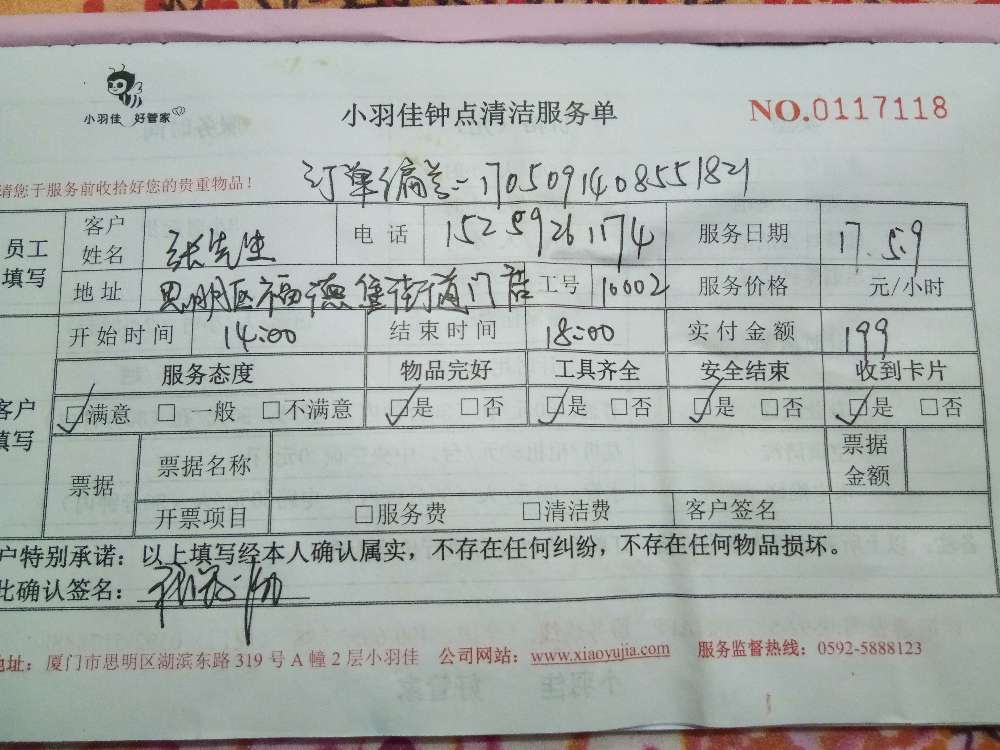 小羽佳 好管家
小羽佳钟点清洁服务单
NO.0117118
请您于服务前收拾好您的贵重物品!
订单编号:1705091408551821
员工填写 客户姓名 张先生 电话 15259261174 服务日期 17.5.9
地址 思明区福德 街道门店 工号 10002 服务价格 元/小时
客户填写 开始时间 14:00 结束时间 18:00 实付金额 199
服务态度 物品完好 工具齐全 安全结束 收到卡片
☑满意 □一般 □不满意 ☑是 □否 ☑是 □否 ☑是 □否 ☑是 □否
票据 票据名称 票据金额
开票项目 □服务费 □清洁费 客户签名
户特别承诺:以上填写经本人确认属实,不存在任何纠纷,不存在任何物品损坏。
此确认签名:
地址:厦门市思明区湖滨东路319号A幢2层小羽佳 公司网站:www.xiaoyujia.com 服务监督热线:0592-5888123